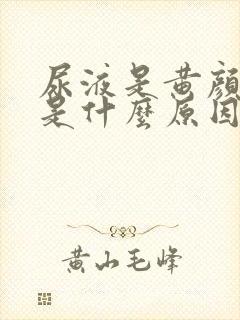 尿液是黄顔
是什麽原因
黄山毛峰